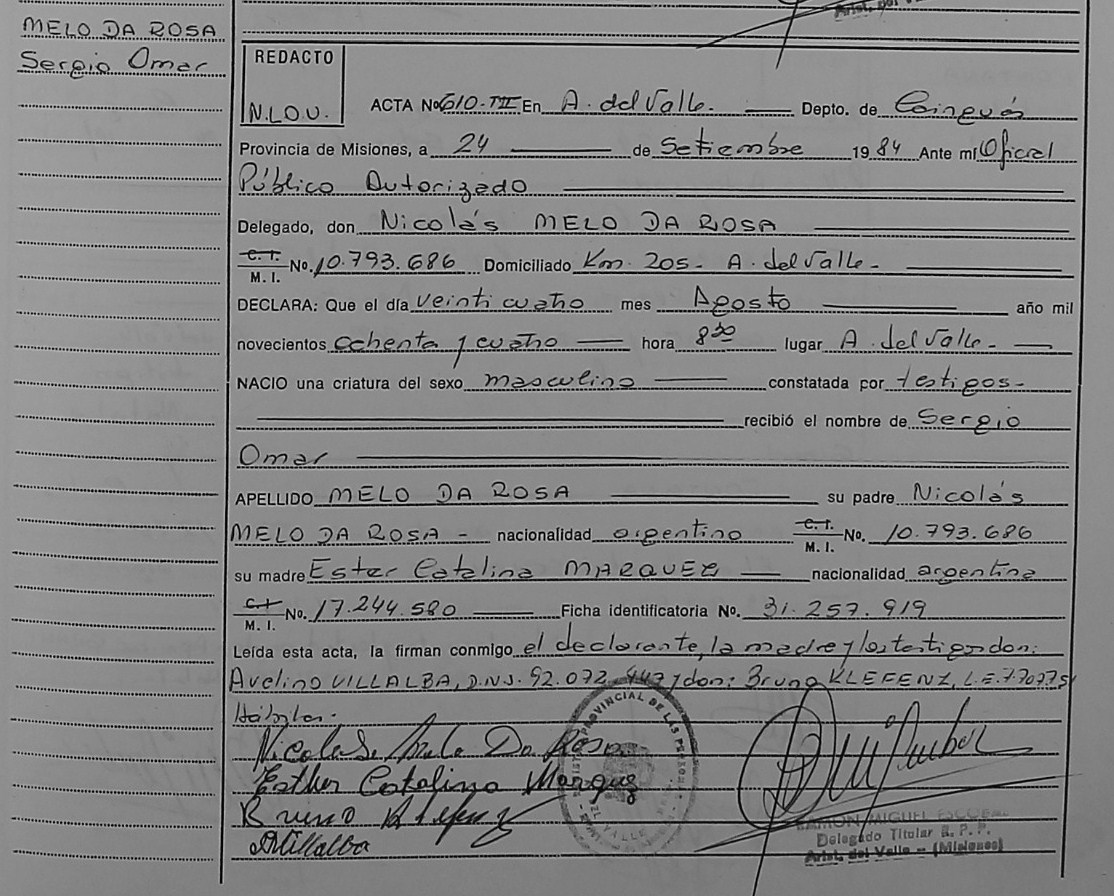 MELO DA ROSA
Sergio Omar
REDACTO
N.L.O.U.
ACTA No 610-TIII En A. del Valle. Depto. de Cainguás
Provincia de Misiones, a 24 de Setiembre 1984 Ante mí Oficial
Público Autorizado
Delegado, don Nicolás MELO DA ROSA
C. I. / M. I. No. 10.793.686 Domiciliado Km. 205- A. del Valle-
DECLARA: Que el día veinticuatro mes Agosto año mil
novecientos ochenta y cuatro hora 8 30 lugar A. del Valle-
NACIO una criatura del sexo masculino constatada por testigos-
recibió el nombre de Sergio
Omar
APELLIDO MELO DA ROSA su padre Nicolás
MELO DA ROSA - nacionalidad argentino C. I. / M. I. No. 10.793.686
su madre Ester Catalina MARQUEZ nacionalidad argentina
C. I. / M. I. No. 17.244.580 Ficha identificatoria No. 31.257.919
Leída esta acta, la firman conmigo el declarante, la madre y los testigos don:
Avelino VILLALBA, D.N.I. 92.072.447 y don: Bruno KLEFENZ, L.E. 770775
Hábiles.
Nicolas Melo Da Rosa
Esther Catalina Marquez
Bruno Klefenz
AVillalba
PROVINCIAL DE LAS PERSO
DEL VALLE
RAMON MIGUEL ESCOBAR
Delegado Titular R. P. P.
Arist. del Valle - (Misiones)